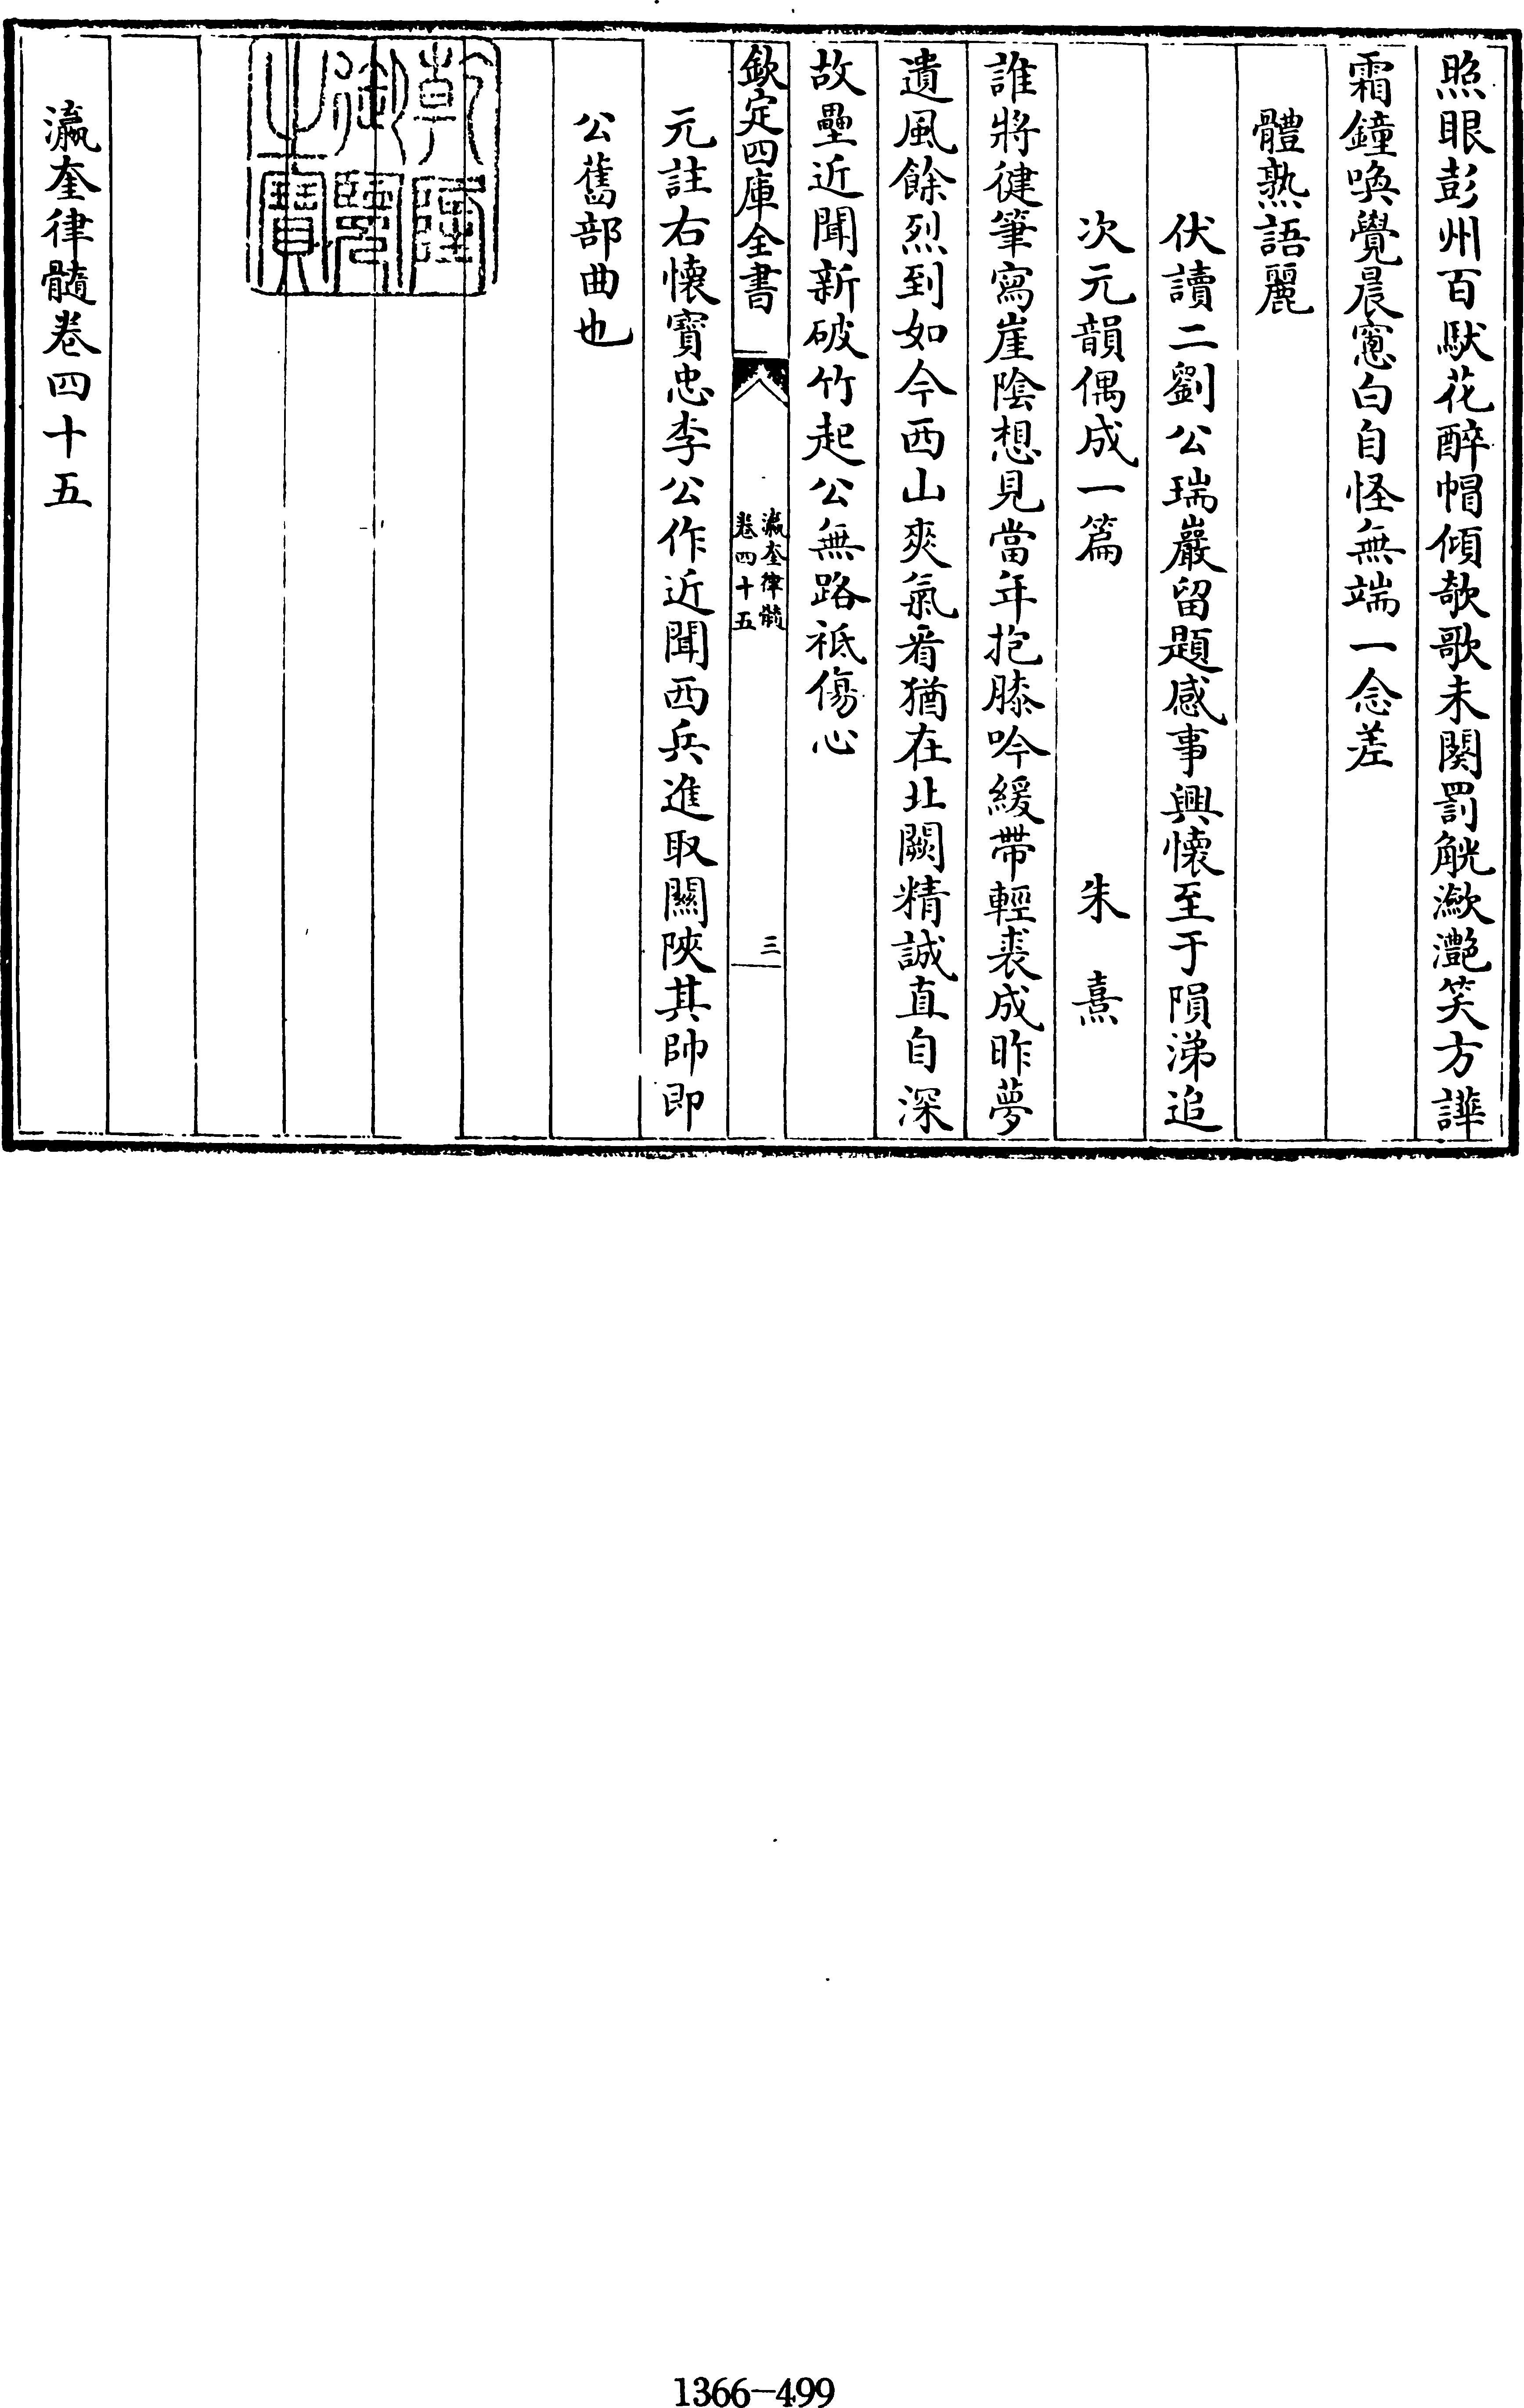 照眼彭州百馱花醉帽傾欹歌未闋罰觥瀲灧笑方譁
霜鐘喚覺晨窻白自怪無端一念差
體熟語麗
伏讀二劉公瑞巖留題感事興懷至于隕涕追
次元韻偶成一篇
朱熹
誰將健筆寫崖陰想見當年抱膝吟緩帶輕裘成昨夢
遺風餘烈到如今西山爽氣看猶在北闕精誠直自深
故壘近聞新破竹起公無路祗傷心
欽定四庫全書
瀛奎律髓
卷四十五
三
元註右懷寶忠李公作近聞西兵進取關陜其帥即
公舊部曲也
乾隆
御覽
之寶
瀛奎律髓卷四十五
1366-499